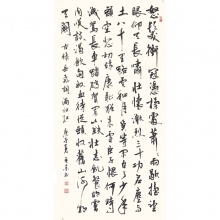 怒髮衝冠憑欄處瀟瀟雨歇抬望
眼仰天長嘯壯懷激烈三十功名塵與
土八千里路雲和月莫等閒白了少年
頭空悲切靖康恥猶未雪臣子恨何時
滅駕長車踏破賀蘭山缺壯志飢餐胡虜
肉笑談渴飲匈奴血待從頭收拾舊山河朝
天闕 岳飛詞滿江紅